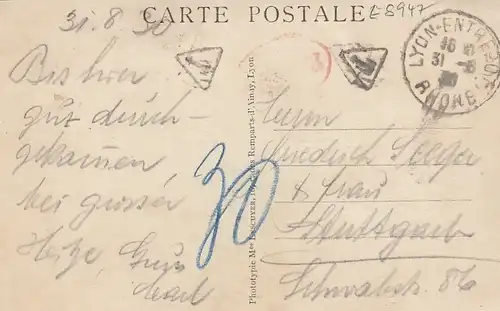 CARTE POSTALE
E8947
31.8.30
Bis hier
gut durch-
gekommen,
bei grosser
Hitze, Gruss
30
Phototypie Mce Lescuyer, Remparts-d'Ainay, Lyon
3
LYON-ENTREPOT
16
31 -8
30
RHONE
Herrn
Friedrich Seeger
& Frau
Stuttgart
Schwabstr. 86